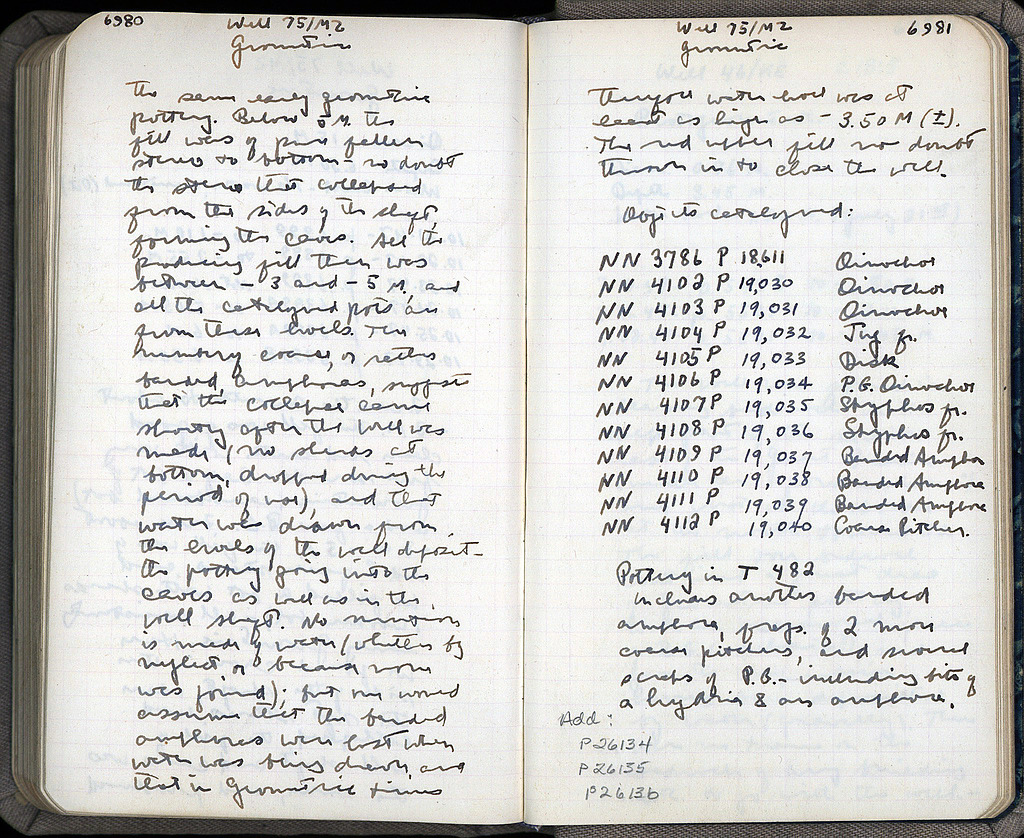 6980
Well 75/M2
Geometric
the same early geometric
pottery. Below 5 M. the
fill was of pure fallen
stereo to bottom - no doubt
the stereo that collapsed
from the sides of the shaft,
forming the caves. All the
producing fill then was
between - 3 and - 5 M, and
all the catalogued pots are
from these levels. The
numbering coarse, or rather
banded, amphoras, suggest
that the collapse came
shortly after the well was
made (no sherds at
bottom, dropped during the
period of use), and that
water was drawn from
the levels of the well deposit -
the pottery going into the
caves as well as in the
well shaft. No mention
is made of water (whether by
neglect or because none
was found); but one would
assume that the banded
amphoras were lost when
water was being drawn, and
that in Geometric times
6981
Well 75/M2
Geometric
the water level was at
least as high as - 3.50 M (±).
The red upper fill no doubt
thrown in to close the well.
Objects catalogued:
NN 3786 P 18,611 Oinochoe
NN 4102 P 19,030 Oinochoe
NN 4103 P 19,031 Oinochoe
NN 4104 P 19,032 Jug fr.
NN 4105 P 19,033 Disk
NN 4106 P 19,034 P.G. Oinochoe
NN 4107 P 19,035 Skyphos fr.
NN 4108 P 19,036 Skyphos fr.
NN 4109 P 19,037 Banded Amphora
NN 4110 P 19,038 Banded Amphora
NN 4111 P 19,039 Banded Amphora
NN 4112 P 19,040 Coarse Pitcher.
Pottery in T 482
includes another banded
amphora, frags. of 2 more
coarse pitchers, and several
scraps of P.G. - including bits of
a hydria & an amphora.
Add:
P26134
P26135
P26136